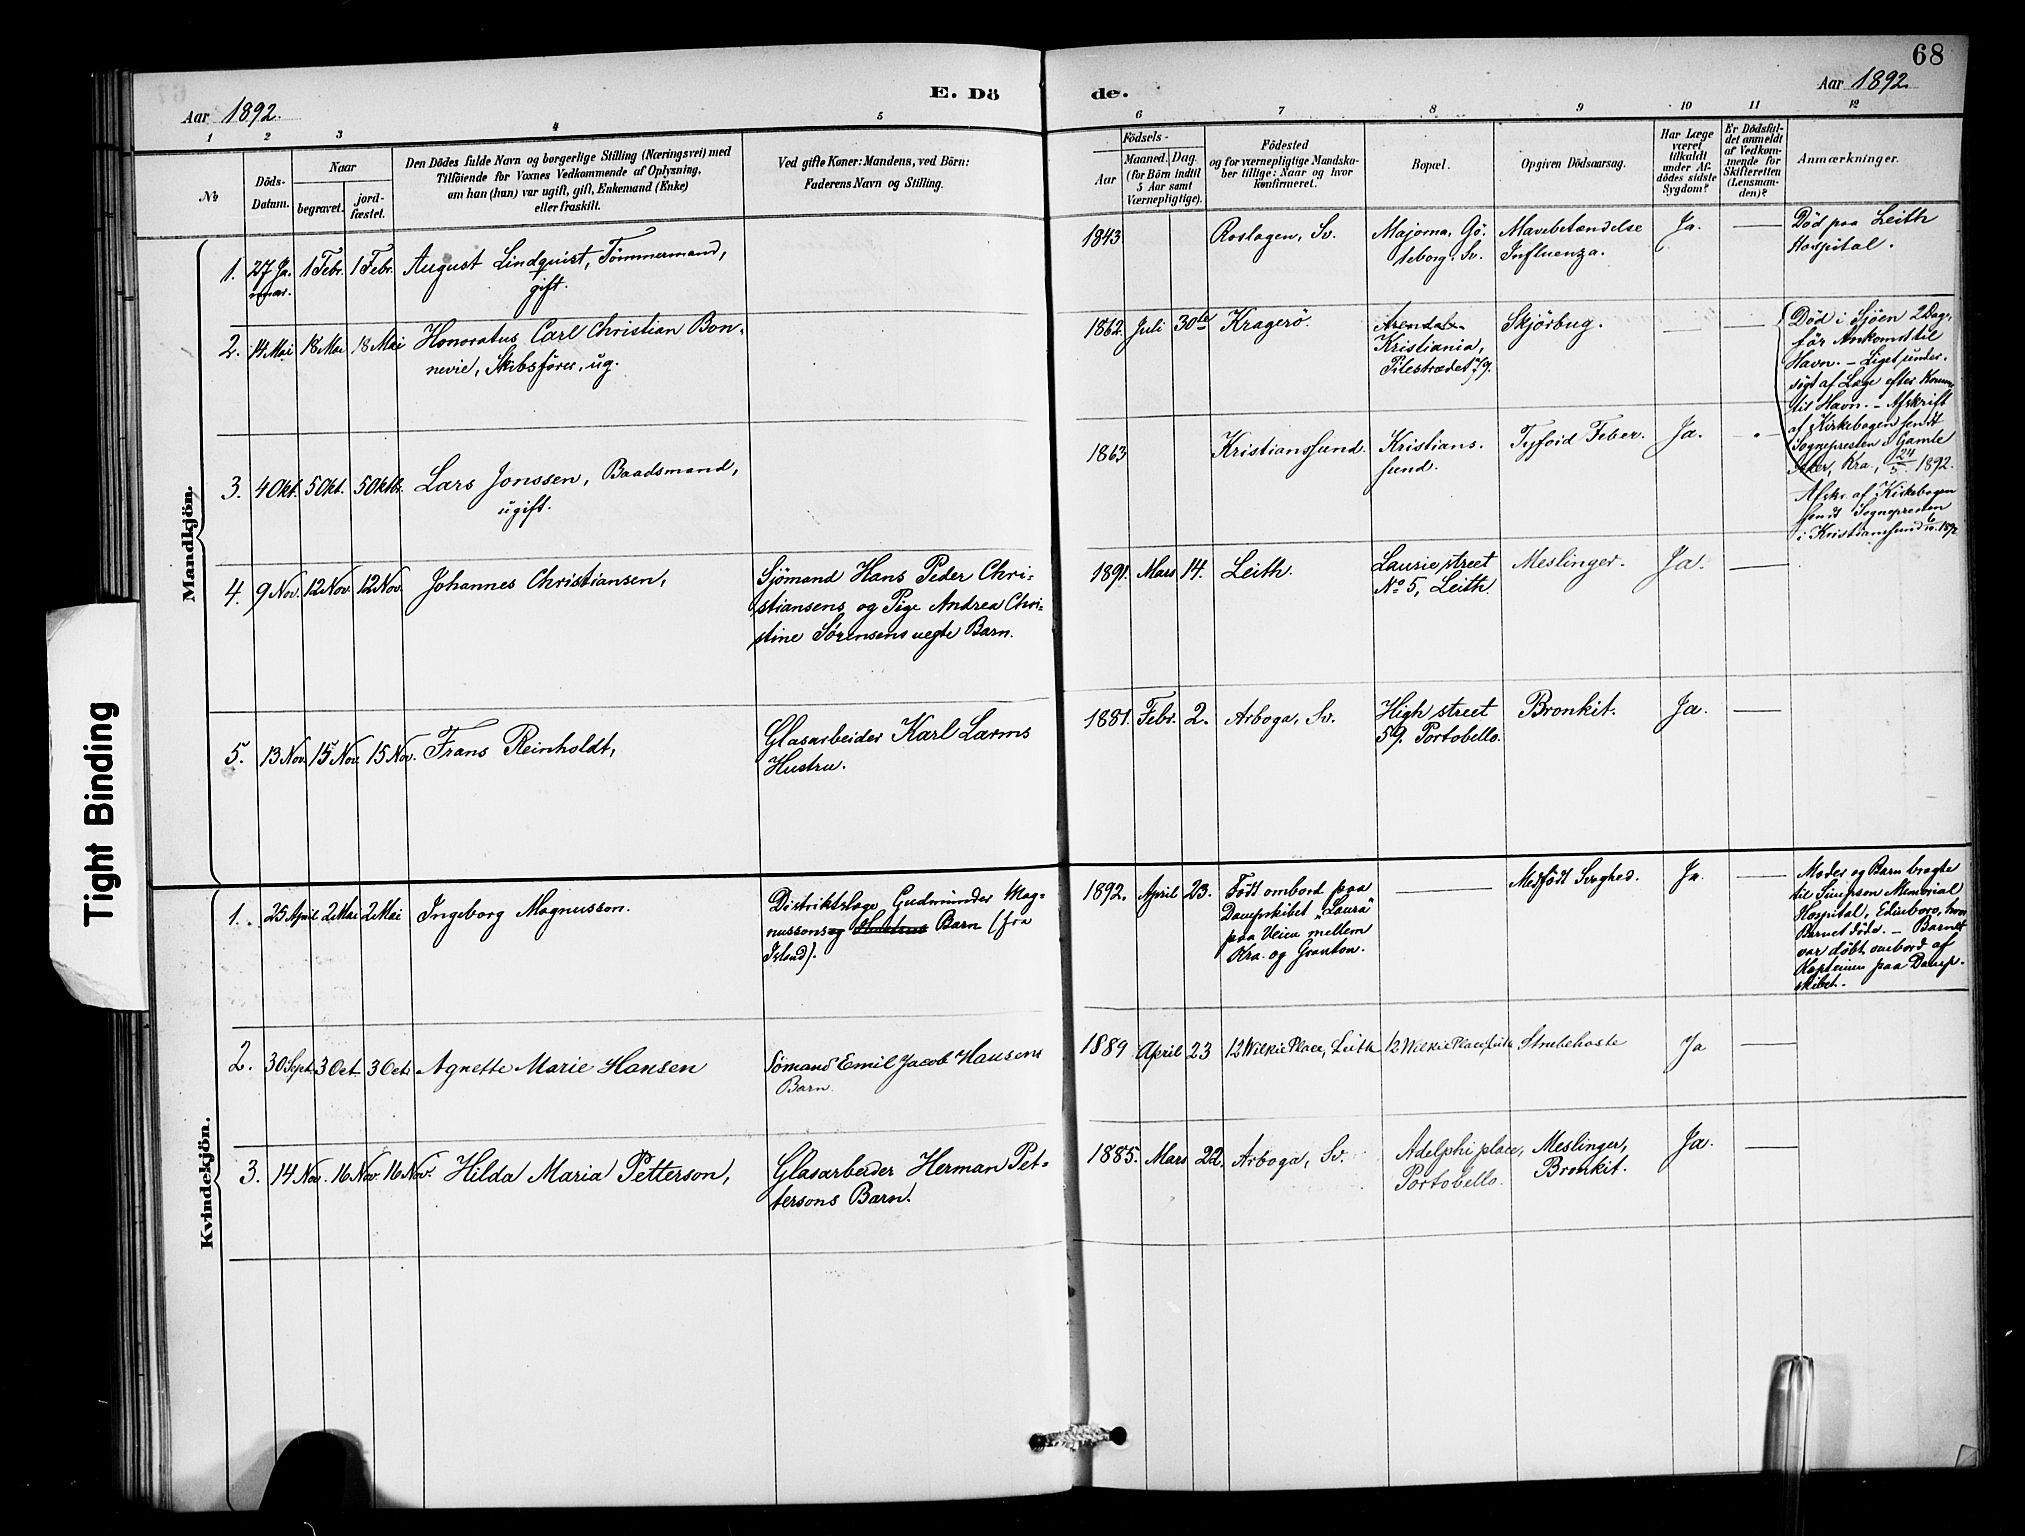 68
E. Dö de.
Aar 1892.
Aar 1892.
1 2 3 4 5 6 7 8 9 10 11 12
No
Döds-
Datum.
Naar
begravet.
jord-
fæstet.
Den Dödes fulde Navn og borgerlige Stilling (Næringsvei) med
Tilföiende for Voxnes Vedkommende af Oplysning,
om han (hun) var ugift, gift, Enkemand (Enke)
eller fraskilt.
Ved gifte Koner: Mandens, ved Börn:
Faderens Navn og Stilling.
Födsels-
Aar
Maaned. Dag.
(for Börn indtil
5 Aar samt
Værnepligtige).
Födested
og for værnepligtige Mandska-
ber tillige: Naar og hvor
konfirmeret.
Bopæl.
Opgiven Dödsaarsag.
Har Læge
været
tilkaldt
under Af-
dödes sidste
Sygdom?
Er Dödsfal-
det anmeldt
af Vedkom-
mende for
Skifteretten
(Lensman-
den)?
Anmærkninger.
Mandkjön.
1. 27 Ja-
nuar. 1 Febr. 1 Febr. August Lindquist, Tömmermand,
gift.
1843 Roslagen, Sv. Majorna, Gö-
teborg. Sv. Mavebetændelse
Influenza. Ja. —
Död paa Leith
Hospital.
2. 14 Mai 18 Mai 18 Mai Honoratus Carl Christian Bon-
nevie, Skibsfører, ug.
1862. Juli 30te Kragerö. Arendal.
Kristiania,
Pilestrædet 79. Skjörbug. — —
Död i Sjöen 2 Dag.
før Ankomst til
Havn. – Liget under-
søgt af Læge efter Komme
til Havn. – Afskrift
af Kirkebogen sendt
Sognepresten i Gamle
Aker, Kra., 24/5 1892.
3. 4 Okt. 5 Okt. 5 Oktbr. Lars Jonssen, Baadsmand,
ugift.
1863 Kristianssund. Kristians-
sund. Tyfoid Feber. Ja.
Afskr. af Kirkebogen
sendt Sognepresten
i Kristianssund 6/10. 1892
4. 9 Nov. 12 Nov. 12 Nov. Johannes Christiansen,
Sjömand Hans Peder Chri-
stiansens og Pige Andrea Chri-
stine Sørensens uegte Barn.
1891. Mars 14. Leith. Laurie street
No 5, Leith. Meslinger. Ja. —
5. 13 Nov. 15 Nov. 15 Nov. Frans Reinholdt,
Glasarbeider Karl Larms
Hustru.
1881. Febr. 2. Arboga, Sv. High street
59. Portobello. Bronkit. Ja. —
Kvindekjön.
1. 25 April 2 Mai 2 Mai Ingeborg Magnusson.
Distriktslæge Gudmunder Mag-
nussons og Hustrus Barn (fra
Island).
1892. April 23. Født ombord paa
Dampskibet „Laura"
paa Veien mellem
Kra. og Granton. — Medfødt Svaghed. Ja. —
Moder og Barn bragte
til Simpson Memorial
Hospital, Edinboro, hvor
Barnet døde. – Barnet
var døbt ombord af
Kapteinen paa Damp-
skibet.
2. 30 Sept. 3 Oct. 3 Oct. Agnette Marie Hansen
Sömand Emil Jacob Hansens
Barn.
1889 April 23 12 Wilkie Place, Leith 12 Wilkie Place, Leith Strubehoste Ja —
3. 14 Nov. 16 Nov. 16 Nov. Hilda Maria Petterson,
Glasarbeider Herman Pet-
tersons Barn.
1885. Mars 22. Arboga, Sv. Adelphi place,
Portobello. Meslinger,
Bronkit. Ja. —
Tight Binding